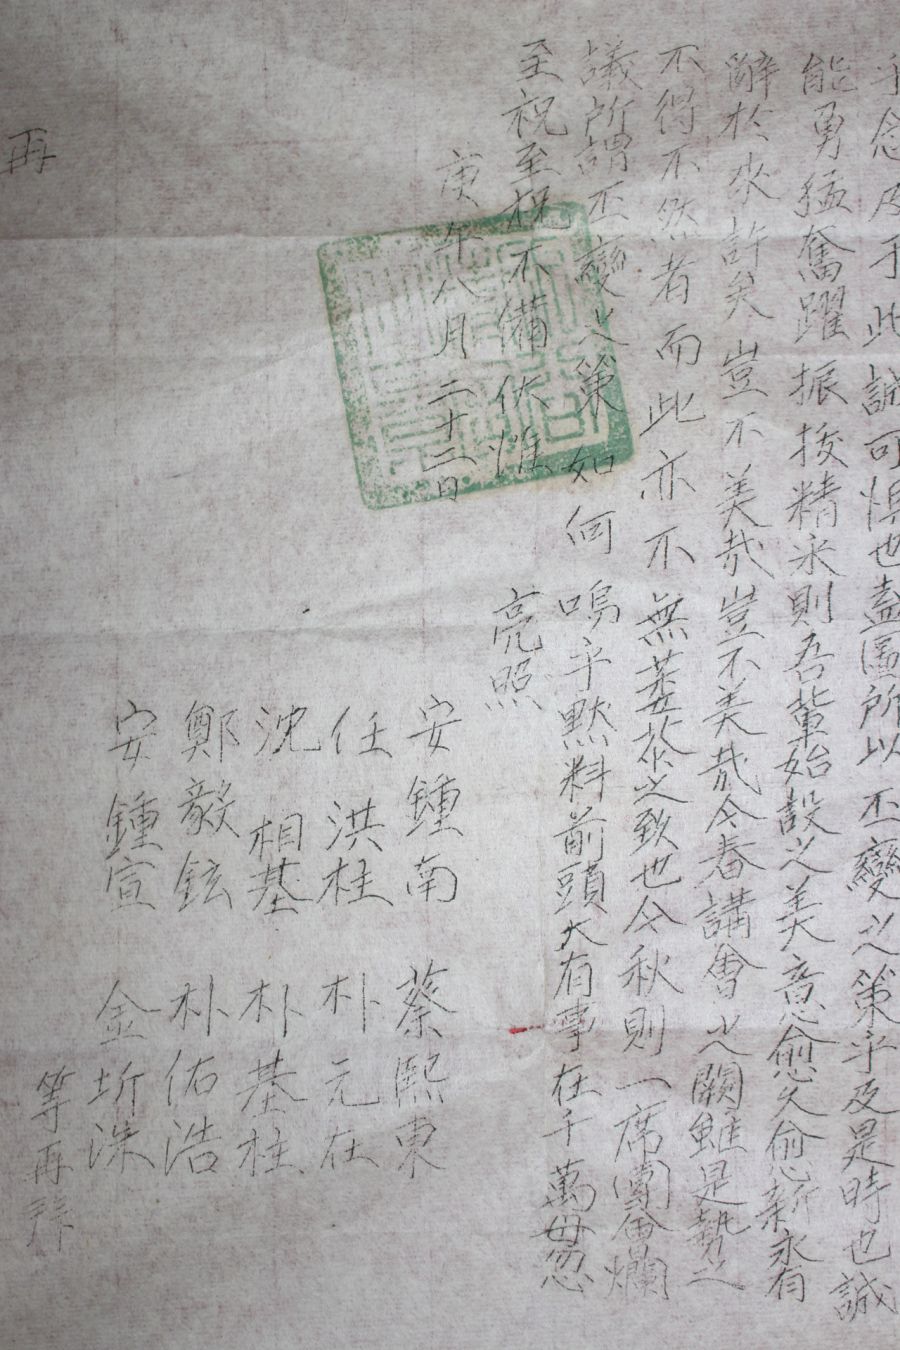 乎念及于此誠可惧也盍圖所以丕變之策乎及是時也誠
能勇猛奮躍振拔精永則吾輩始設之美意愈久愈新永有
辭於來許矣豈不美哉豈不美哉今春講會之闕雖是勢之
不得不然者而此亦不無萎茶之致也今秋則一席團會爛
議所謂丕變之策如何嗚乎黙料前頭大有事在千萬毋忽
至祝至祝不備伏惟
亮照
庚午八月二十二日
安鍾南 蔡熙東
任洪桂 朴元在
沈相基 朴基柱
鄭毅鉉 朴佑浩
安鍾宣 金圻洙
等再拜
再